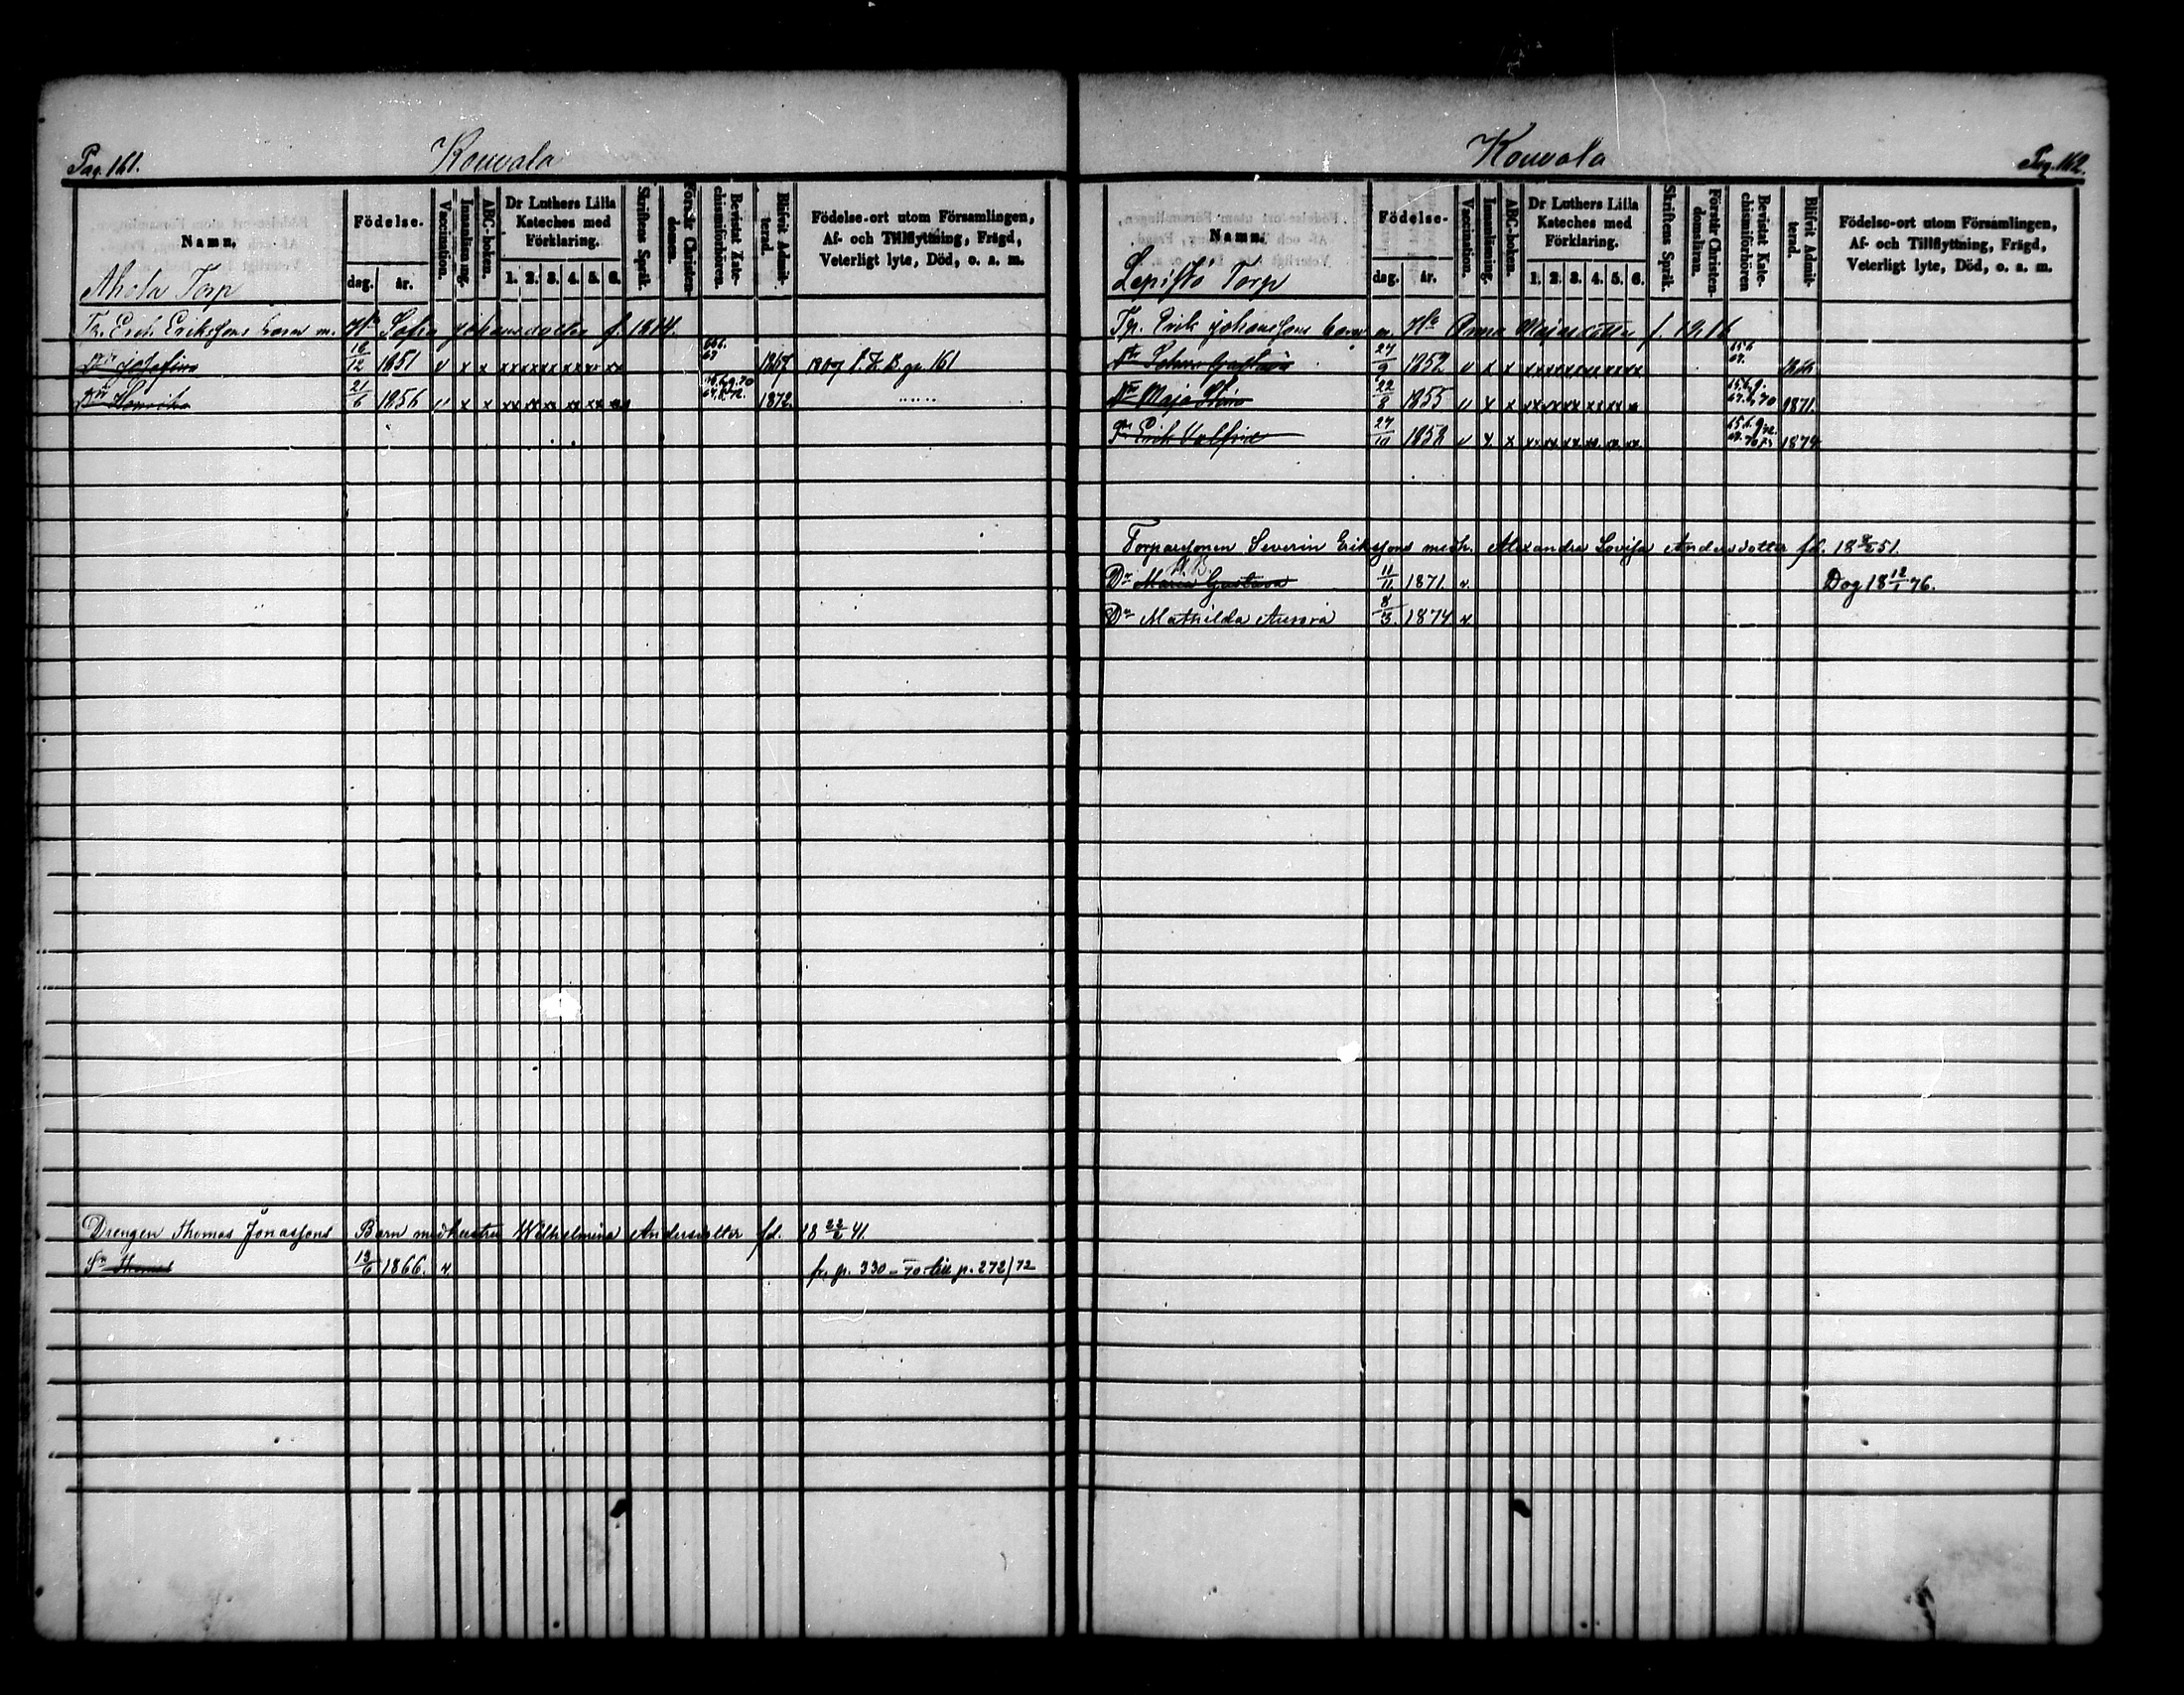 Pag. 161. Kouvala
Namn. Födelse. dag. år. Vaccination. Innanläsning. ABC-boken. Dr Luthers Lilla Kateches med Förklaring. 1. 2. 3. 4. 5. 6. Skriftens Språk. Förstår Christen-domen. Bevistat Kate-chismiförhören. Blifvit Admit-terad. Födelse-ort utom Församlingen, Af- och Tillflyttning, Frägd, Veterligt lyte, Död, o. s. m.
Ahola Torp
Tr. Erik Erikssons barn m. Hu Sofia Johansdotter f. 1814.
Dr Josefina 16/12 1851 v x x xx xx xx xx xx xx 1867 161
Dr Henrika 21/6 1856 v x x xx xx xx xx xx xx 1872.
Drengen Thomas Jonassons Barn m. hustru Wilhelmina Andersdotter fd. 18 22/2 41.
Sn Thomas 13/6 1866. v. fr. p. 330 - 70. till p. 272/72
Pag. 162. Kouvala
Namn. Födelse- dag. år. Vaccination. Innanläsning. ABC-boken. Dr Luthers Lilla Kateches med Förklaring. 1. 2. 3. 4. 5. 6. Skriftens Språk. Förstår Christen-domsläran. Bevistat Kate-chismiförhören Blifvit Admit-terad. Födelse-ort utom Församlingen, Af- och Tillflyttning, Frägd, Veterligt lyte, Död, o. s. m.
Lepistö Torp
Tr. Erik Johanssons barn m. Hu Anna Majasdotter f. 1816
Dr Gustava 27/9 1852 v x x xx xx xx xx xx xx
Dr Maja Stina 22/8 1855 v x x xx xx xx xx xx x 1871.
Sn Erik Valfrid 27/10 1858 v x x xx xx xx xx xx xx 1874
Torparsonen Severin Erikssons med h. Alexandra Lovisa Andersdotter fd. 51.
Dr Maria Gustava 11/11 1871. v. Dog 18 12/1 76.
Dr Mathilda Aurora 8/3. 1874 v.